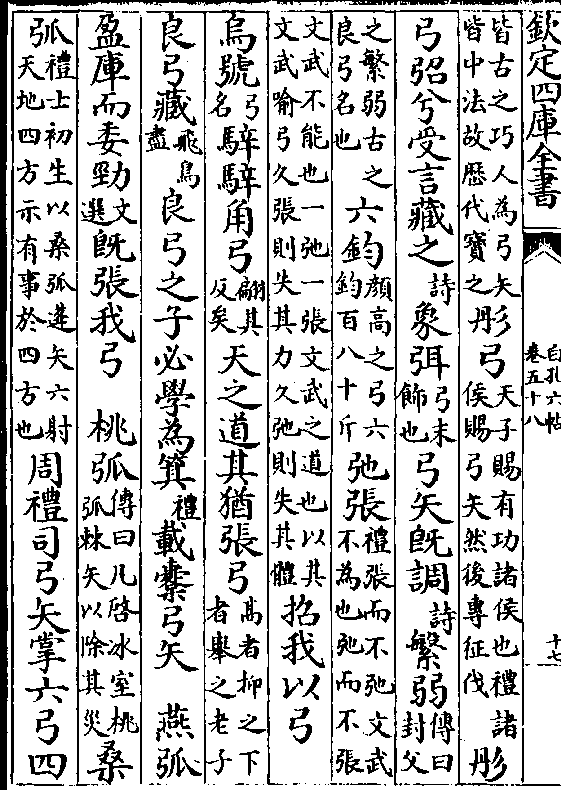 欽定四庫全書
白孔六帖
卷五十八
十七
皆古之巧人為弓矢皆中法故歴代寶之彤弓天子賜有功諸侯也禮諸侯賜弓矢然後專征伐彤
弓弨兮受言藏之詩象弭弓末飾也弓矢既調詩繁弱傳曰封父
之繁弱古之良弓名也六鈞顔高之弓六鈞百八十斤弛張禮張而不弛文武不為也弛而不張
文武不能也一弛一張文武之道也以其文武喻弓久張則失其力久弛則失其體招我以弓
烏號弓名騂騂角弓翩其反矣天之道其猶張弓髙者抑之下者舉之老子
良弓藏飛鳥盡良弓之子必學為箕禮載櫜弓矢 燕弧
盈庫而委勁文選既張我弓 桃弧傳曰凡啓冰室桃弧棘矢以除其災桑
弧禮士初生以桑弧蓬矢六射天地四方示有事於四方也周禮司弓矢掌六弓四